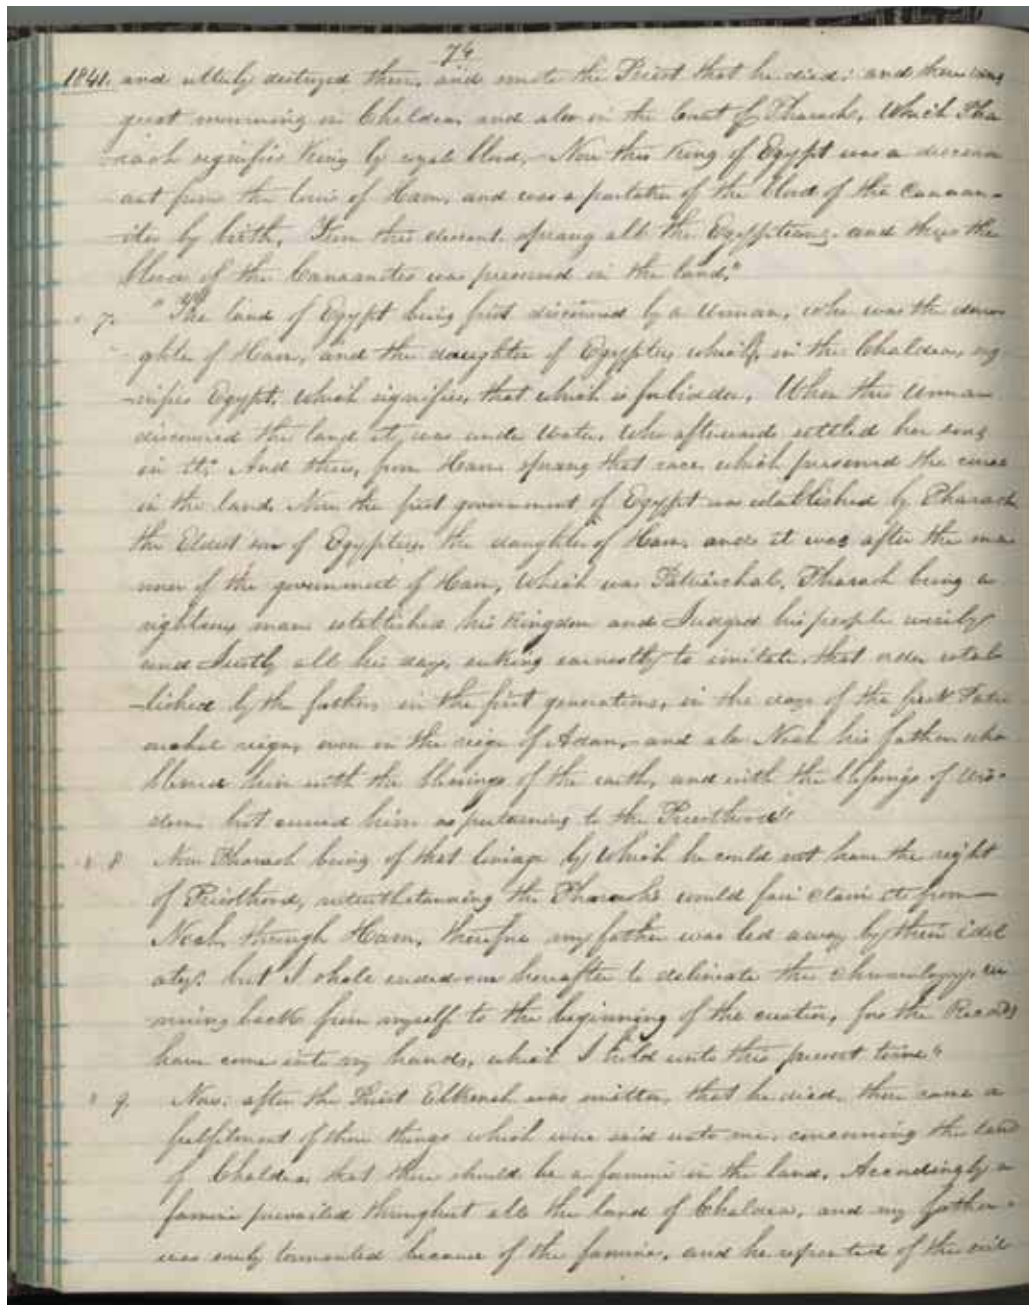 74
1841. and utterly destroyed them, and smote the Priest that he died; and there was
great mourning in Chaldea, and also in the Court of Pharaoh, Which Pha
raoh signifies King by royal blood, Now this King of Egypt was a descend
ant from the loins of Ham, and was a partaker of the blood of the Canaan-
ites by birth, From this descent sprang all the Egyptians, and thus the
blood of the Canaanites was preserved in the land."
" 7. "The land of Egypt being first discovered by a Woman, who was the dau
ghter of Ham, and the daughter of Egyptus, which, in the Chaldea, sig
-nifies Egypt, which signifies, that which is forbidden, When this Woman
discovered the land it was under Water, Who afterwards settled her sons
in it; And thus, from Ham sprang that race, which preserved the curse
in the land. Now the first government of Egypt was established by Pharaoh
the Eldest son of Egyptus the daughter of Ham, and it was after the ma
nner of the government of Ham, Which was Patriarchal, Pharaoh being a
righteous man established his Kingdom and Judged his people wisely
and Justly all his days, seeking earnestly to imitate that order estab
-lished by the fathers in the first generations, in the days of the first Patri
archal reign, even in the reign of Adam, and also Noah his father, who
blessed him with the blessings of the earth, and with the blessings of Wis-
dom, but cursed him as pertaining to the Priesthood"
" 8 Now Pharaoh being of that lineage by Which he could not have the right
of Priesthood, notwithstanding the Pharaohs would fain claim it from
Noah, through Ham, therefore my father was led away by their idol
atry; but I shall endeavour hereafter to delineate the chronology ru
nning back from myself to the beginning of the creation, for the Records
have come into my hands, which I hold unto this present time"
" 9. Now, after the Priest Elkenah was smitten, that he died, there came a
fulfilment of those things which were said unto me, concerning the land
of Chaldea, that there should be a famine in the land, Accordingly a
famine prevailed throughout all the land of Chaldea, and my father
was sorely tormented because of the famine, and he repented of the evil